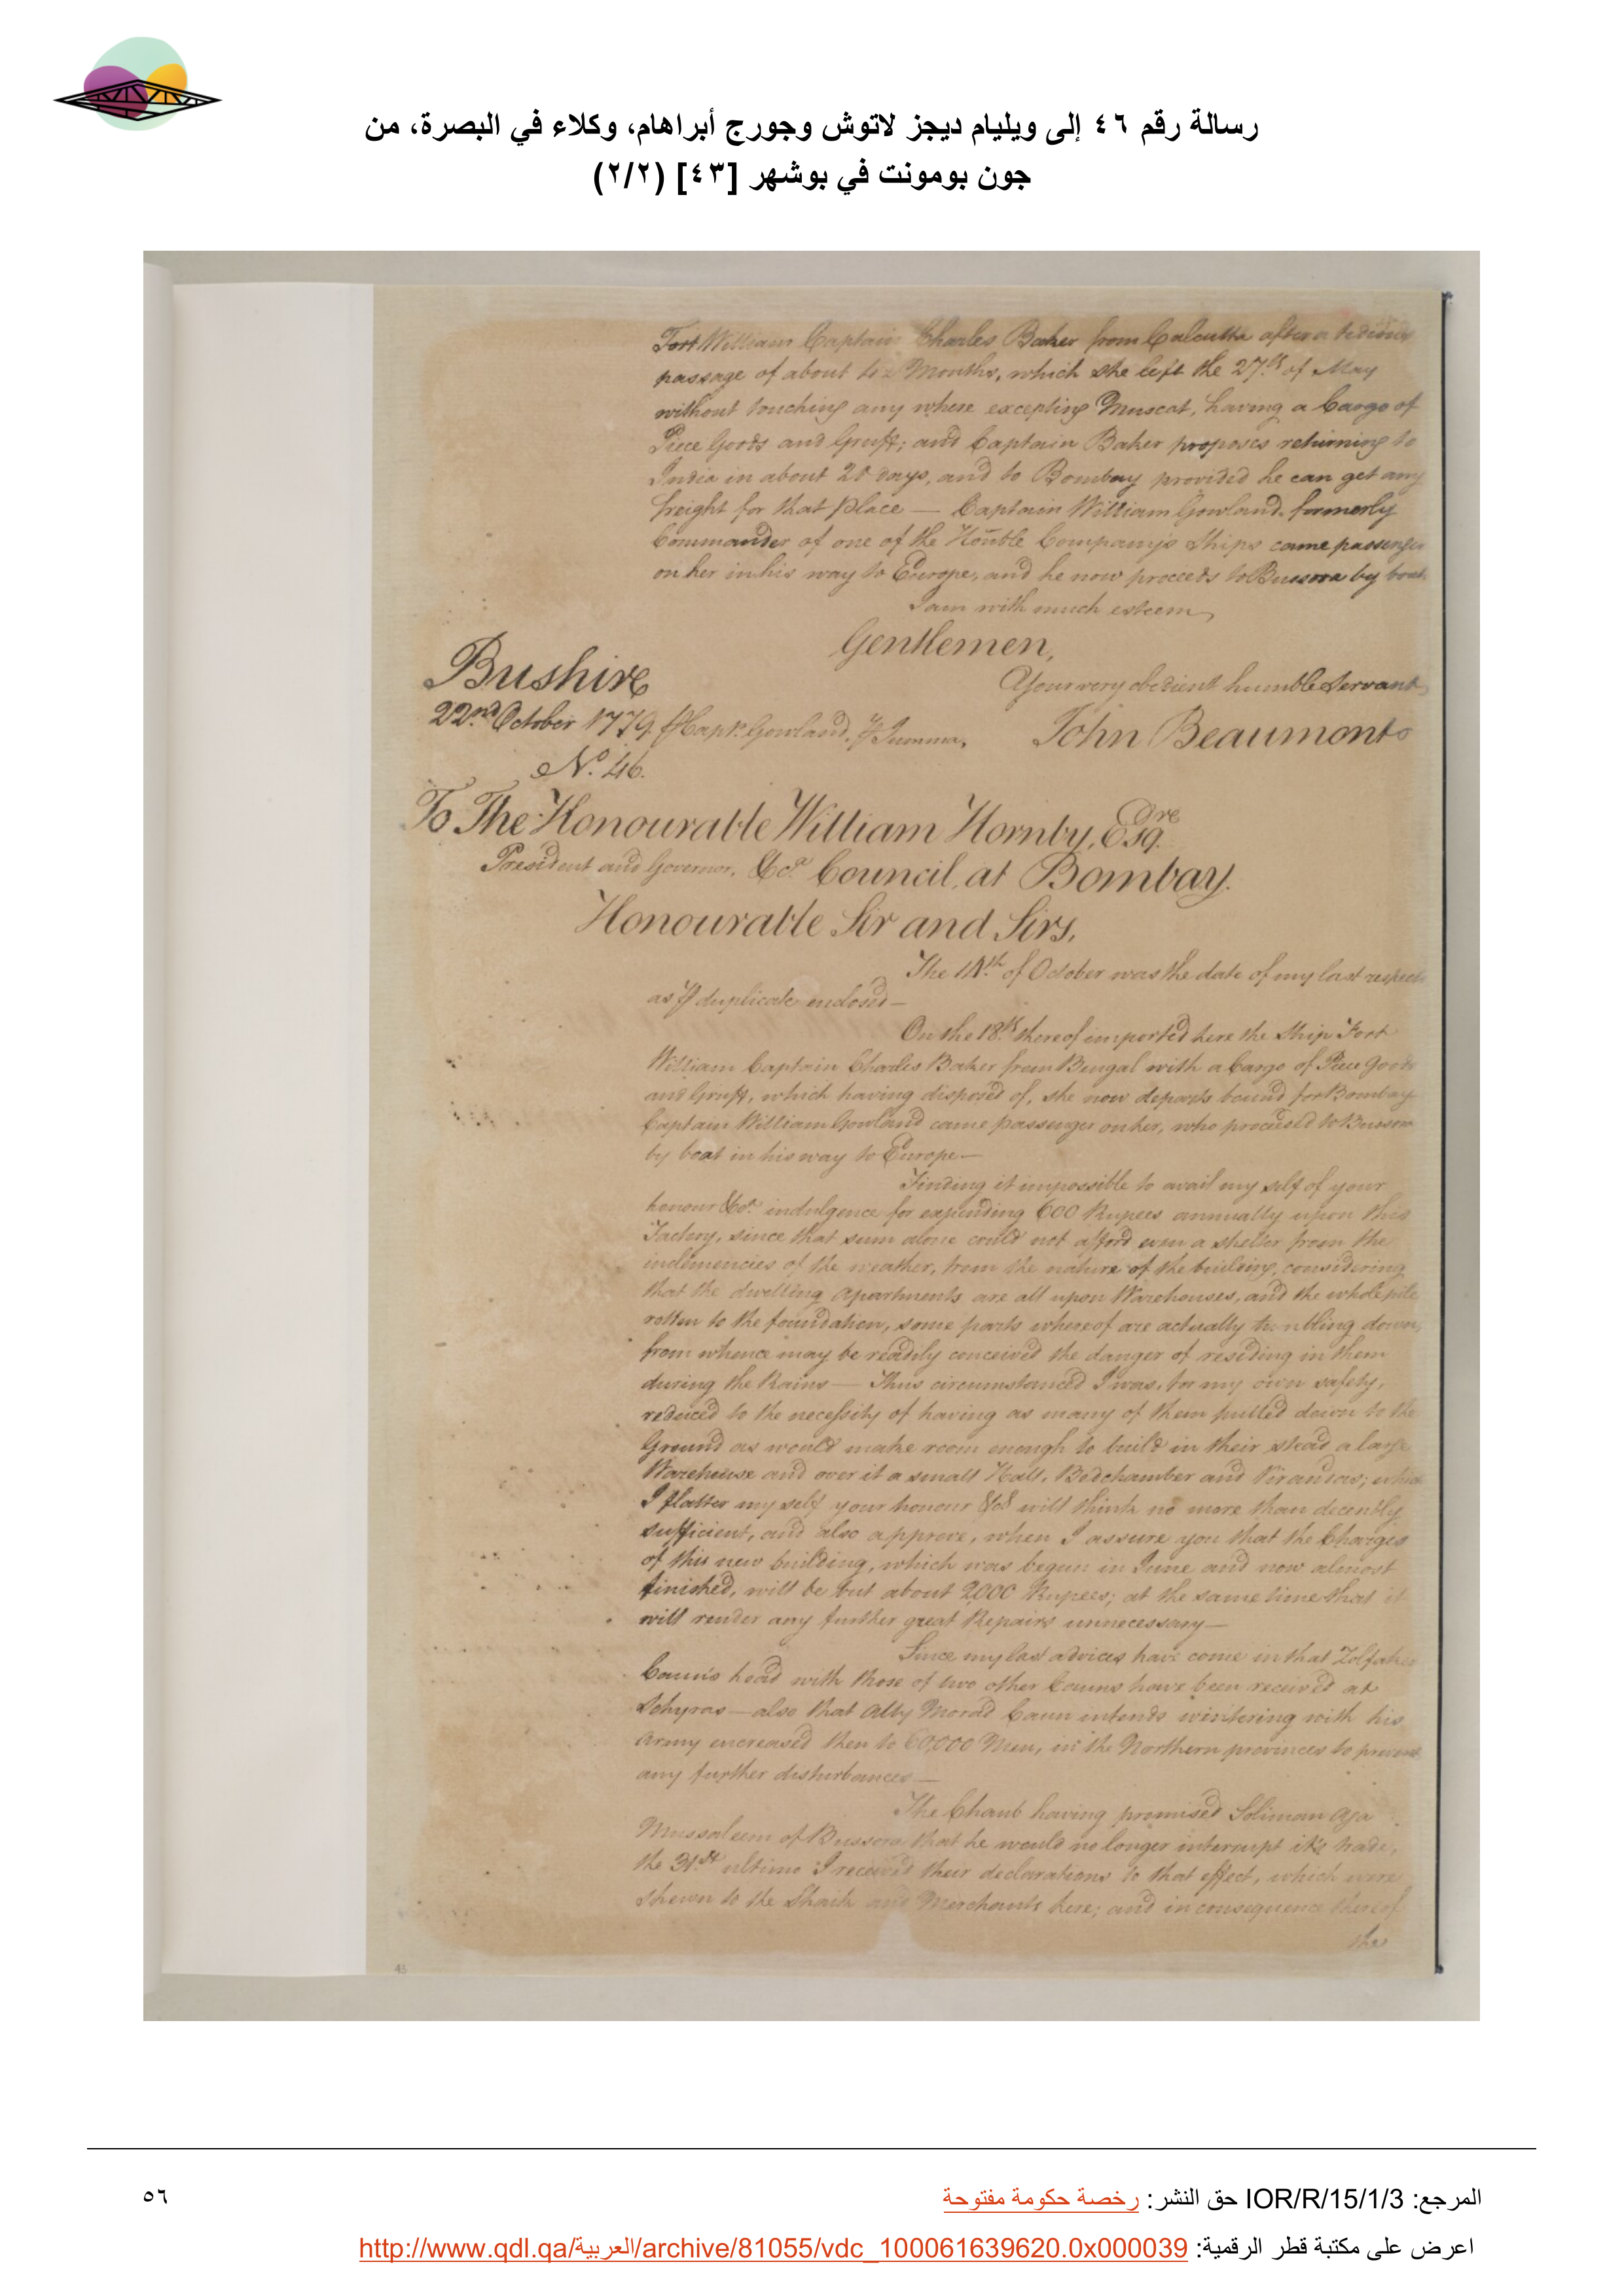 رسالة رقم ٤٦ إلى ويليام ديجز لاتوش وجورج أبراهام، وكلاء في البصرة، من
جون بومونت في بوشهر [٤٣] (٢/٢)
Fort William Captain Charles Baker from Calcutta after a tedious
passage of about Months, which she left the 27.th of May
without touching any where excepting Muscat, having a Cargo of
Piece Goods and Gruff; and Captain Baker proposes returning to
India in about 20 days, and to Bombay provided he can get any
freight for that place — Captain William Gowland, formerly
Commander of one of the Honble Company's Ships came passenger
on her in his way to Europe, and he now proceeds to Bussora by boat
I am with much esteem
Gentlemen,
Bushire
Your very obedient humble Servant
22.nd October 1779. Capt. Gowland.
John Beaumont
No. 46.
To The Honourable William Hornby, Esqre
President and Governor, &ca. Council, at Bombay.
Honourable Sir and Sirs,
The 14.th of October was the date of my last respects
as duplicate enclosed —
On the 18.th thereof imported here the Ship Fort
William Captain Charles Baker from Bengal with a Cargo of Piece Goods
and Gruff, which having disposed of, she now departs bound for Bombay
Captain William Gowland came passenger on her, who proceeded to Bussora
by boat in his way to Europe —
Finding it impossible to avail my self of your
honour &ca. indulgence for expending 600 Rupees annually upon this
Factory, since that sum alone could not afford even a shelter from the
inclemencies of the weather, from the nature of the building, considering
that the dwelling Apartments are all upon Warehouses, and the whole pile
rotten to the foundation, some parts whereof are actually tumbling down,
from whence may be readily conceived the danger of residing in them
during the Rains — Thus circumstanced I was, for my own safety,
reduced to the necessity of having as many of them pulled down to the
Ground as would make room enough to build in their stead a large
Warehouse and over it a small Hall, Bedchamber and Virandas; which
I flatter my self your honour &ca will think no more than decently
sufficient, and also approve, when I assure you that the Charges
of this new building, which was begun in June and now almost
finished, will be but about 2000 Rupees; at the same time that it
will render any further great Repairs unnecessary —
Since my last advices have come in that Zolfakar
Caun's head with those of two other Cauns have been received at
Schyras — also that Ally Morad Caun intends wintering with his
Army encreased then to 60,000 Men, in the Northern provinces to prevent
any further disturbances —
The Chaub having promised Soliman Aga
Mussaleem of Bussora that he would no longer interrupt it's trade,
the 31.st ultimo I received their declarations to that effect, which were
shewn to the Shaik and Merchants here; and in consequence thereof
the
43
المرجع: IOR/R/15/1/3 حق النشر: رخصة حكومة مفتوحة
٥٦
اعرض على مكتبة قطر الرقمية: http://www.qdl.qa/العربية/archive/81055/vdc_100061639620.0x000039